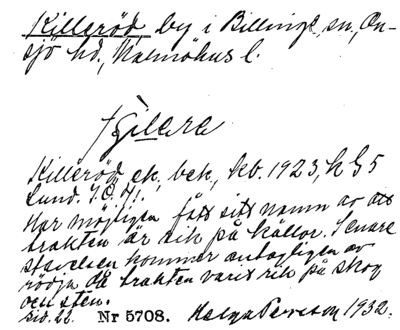 Killeröd, by i Billinge sn, On-
sjö hd, Malmöhus l.
Killeröd ek. bek, kb. 1923, h G 5
Lund.
Har möjligen fått sitt namn av att
trakten är rik på källor. Senare
stavelsen kommer antagligen av
rödja då trakten varit rik på skog
och sten.
sid. 22. Nr 5708. Helga Persson 1932.